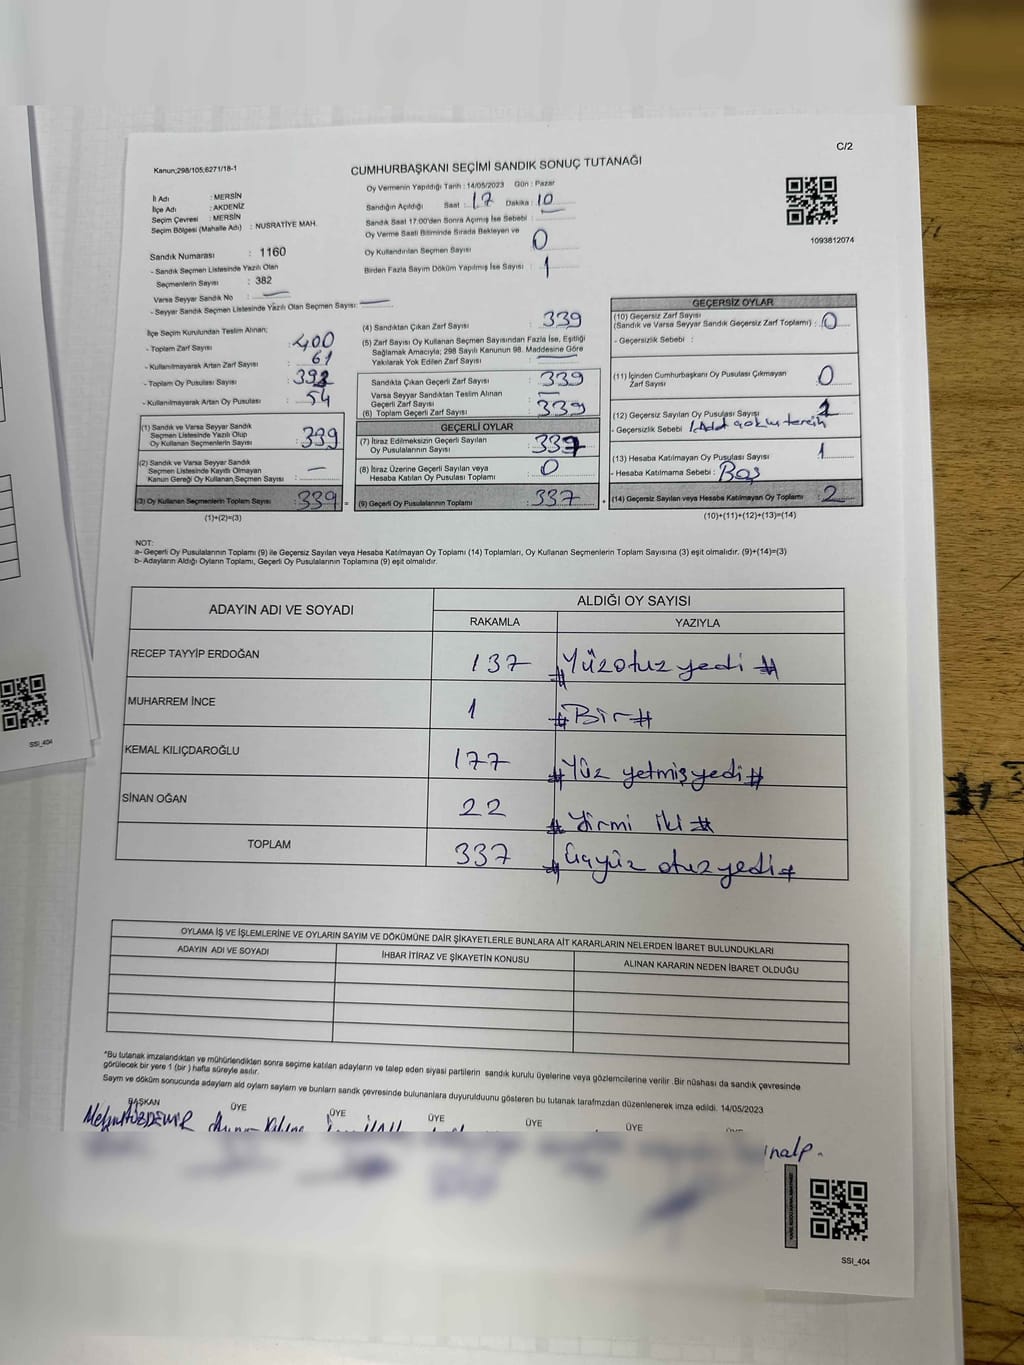 C/2
Kanun;298/105;6271/18-1
CUMHURBAŞKANI SEÇİMİ SANDIK SONUÇ TUTANAĞI
Oy Vermenin Yapıldığı Tarih : 14/05/2023 Gün : Pazar
İl Adı : MERSİN
İlçe Adı : AKDENİZ
Seçim Çevresi : MERSİN
Seçim Bölgesi (Mahalle Adı) : NUSRATİYE MAH.
Sandığın Açıldığı Saat : 17 Dakika : 10
Sandık Saat 17:00'den Sonra Açımış İse Sebebi :
Oy Verme Saati Bitiminde Sırada Bekleyen ve
Oy Kullandırılan Seçmen Sayısı : 0
Birden Fazla Sayım Döküm Yapılmış İse Sayısı : 1
1093812074
Sandık Numarası : 1160
- Sandık Seçmen Listesinde Yazılı Olan
Seçmenlerin Sayısı : 382
Varsa Seyyar Sandık No :
- Seyyar Sandık Seçmen Listesinde Yazılı Olan Seçmen Sayısı:
İlçe Seçim Kurulundan Teslim Alınan;
- Toplam Zarf Sayısı : 400
- Kullanılmayarak Artan Zarf Sayısı : 61
- Toplam Oy Pusulası Sayısı :
- Kullanılmayarak Artan Oy Pusulası : 54
(1) Sandık ve Varsa Seyyar Sandık
Seçmen Listesinde Yazılı Olup
Oy Kullanan Seçmenlerin Sayısı : 339
(2) Sandık ve Varsa Seyyar Sandık
Seçmen Listesinde Kayıtlı Olmayan
Kanun Gereği Oy Kullanan Seçmen Sayısı : —
(3) Oy Kullanan Seçmenlerin Toplam Sayısı : 339 =
(1)+(2)=(3)
(4) Sandıktan Çıkan Zarf Sayısı : 339
(5) Zarf Sayısı Oy Kullanan Seçmen Sayısından Fazla İse, Eşitliği
Sağlamak Amacıyla; 298 Sayılı Kanunun 98. Maddesine Göre
Yakılarak Yok Edilen Zarf Sayısı :
Sandıkta Çıkan Geçerli Zarf Sayısı : 339
Varsa Seyyar Sandıktan Teslim Alınan
Geçerli Zarf Sayısı : —
(6) Toplam Geçerli Zarf Sayısı : 339
GEÇERLİ OYLAR
(7) İtiraz Edilmeksizin Geçerli Sayılan
Oy Pusulalarının Sayısı : 337
(8) İtiraz Üzerine Geçerli Sayılan veya
Hesaba Katılan Oy Pusulası Toplamı : 0
(9) Geçerli Oy Pusulalarının Toplamı : 337 +
GEÇERSİZ OYLAR
(10) Geçersiz Zarf Sayısı
(Sandık ve Varsa Seyyar Sandık Geçersiz Zarf Toplamı) : 0
- Geçersizlik Sebebi :
(11) İçinden Cumhurbaşkanı Oy Pusulası Çıkmayan
Zarf Sayısı : 0
(12) Geçersiz Sayılan Oy Pusulası Sayısı : 1
- Geçersizlik Sebebi : 1 Adet çoklu tercih
(13) Hesaba Katılmayan Oy Pusulası Sayısı : 1
- Hesaba Katılmama Sebebi : Boş
(14) Geçersiz Sayılan veya Hesaba Katılmayan Oy Toplamı : 2
(10)+(11)+(12)+(13)=(14)
NOT:
a- Geçerli Oy Pusulalarının Toplamı (9) ile Geçersiz Sayılan veya Hesaba Katılmayan Oy Toplamı (14) Toplamları, Oy Kullanan Seçmenlerin Toplam Sayısına (3) eşit olmalıdır. (9)+(14)=(3)
b- Adayların Aldığı Oyların Toplamı, Geçerli Oy Pusulalarının Toplamına (9) eşit olmalıdır.
ADAYIN ADI VE SOYADI ALDIĞI OY SAYISI
RAKAMLA YAZIYLA
RECEP TAYYİP ERDOĞAN 137 # Yüzotuz yedi #
MUHARREM İNCE 1 # Bir #
KEMAL KILIÇDAROĞLU 177 # Yüz yetmiş yedi #
SİNAN OĞAN 22 # Yirmi iki #
TOPLAM 337 # Üçyüz otuz yedi #
OYLAMA İŞ VE İŞLEMLERİNE VE OYLARIN SAYIM VE DÖKÜMÜNE DAİR ŞİKAYETLERLE BUNLARA AİT KARARLARIN NELERDEN İBARET BULUNDUKLARI
ADAYIN ADI VE SOYADI İHBAR İTİRAZ VE ŞİKAYETİN KONUSU ALINAN KARARIN NEDEN İBARET OLDUĞU
*Bu tutanak imzalandıktan ve mühürlendikten sonra seçime katılan adayların ve talep eden siyasi partilerin sandık kurulu üyelerine veya gözlemcilerine verilir .Bir nüshası da sandık çevresinde
görülecek bir yere 1 (bir ) hafta süreyle asılır.
Sayım ve döküm sonucunda adayların ald oyların sayıları ve bunların sandık çevresinde bulunanlara duyurulduunu gösteren bu tutanak tarafmzdan düzenlenerek imza edildi. 14/05/2023
BAŞKAN ÜYE ÜYE ÜYE ÜYE ÜYE
SSI_404
SSI_404